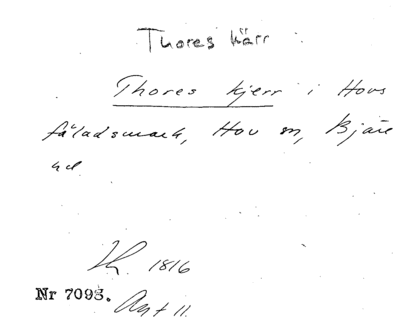 Thores kärr
Thores kjerr i Hovs
fäladsmark, Hov sn, Bjäre
hd
1816
Nr 7093.
Ant 11.